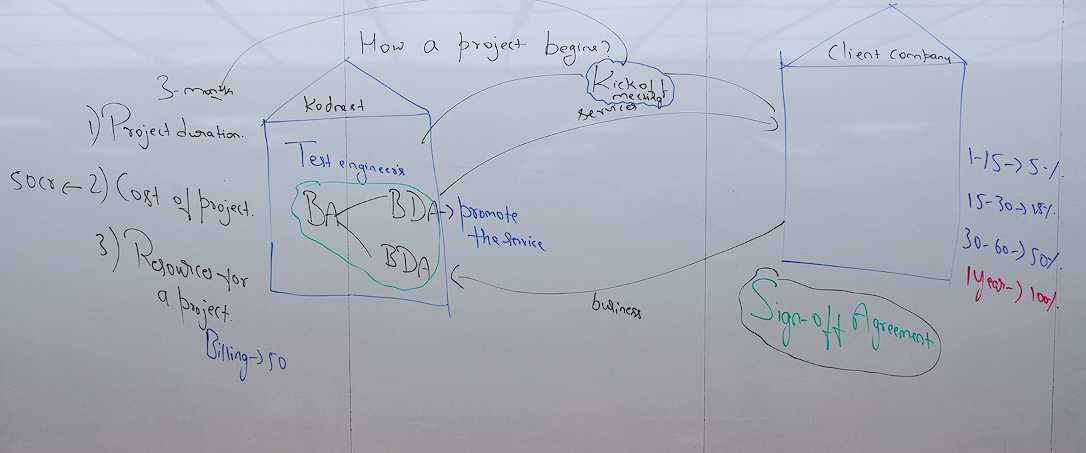 How a project begins?
3-months
1) Project duration.
50cr ← 2) Cost of project.
3) Resources for
a project.
Billing → 50
Kodnest
Test engineers
BA
BDA → promote
the service
BDA
Kickoff
meeting
services
business
Client company
Sign-off Agreement
1-15 → 5%
15-30 →
30-60 → 50%
1 Year → 100%